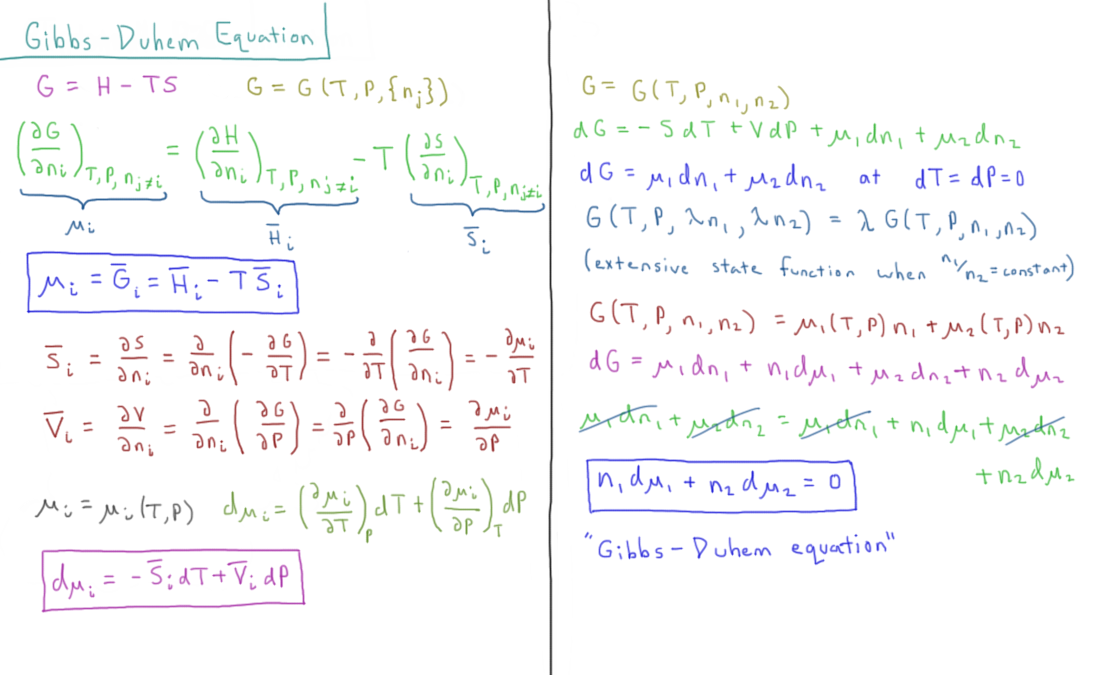 Gibbs-Duhem Equation
G = H - TS    G = G(T,P,{nⱼ})
(∂G/∂nᵢ)_T,P,nⱼ≠ᵢ = (∂H/∂nᵢ)_T,P,nⱼ≠ᵢ - T(∂S/∂nᵢ)_T,P,nⱼ≠ᵢ
μᵢ    H̅ᵢ    S̅ᵢ
μᵢ = G̅ᵢ = H̅ᵢ - TS̅ᵢ
S̅ᵢ = ∂S/∂nᵢ = ∂/∂nᵢ(-∂G/∂T) = -∂/∂T(∂G/∂nᵢ) = -∂μᵢ/∂T
V̅ᵢ = ∂V/∂nᵢ = ∂/∂nᵢ(∂G/∂P) = ∂/∂P(∂G/∂nᵢ) = ∂μᵢ/∂P
μᵢ = μᵢ(T,P)    dμᵢ = (∂μᵢ/∂T)_P dT + (∂μᵢ/∂P)_T dP
dμᵢ = -S̅ᵢdT + V̅ᵢdP
G = G(T,P,n₁,n₂)
dG = -SdT + VdP + μ₁dn₁ + μ₂dn₂
dG = μ₁dn₁ + μ₂dn₂ at dT = dP = 0
G(T,P,λn₁,λn₂) = λG(T,P,n₁,n₂)
(extensive state function when n₁/n₂ = constant)
G(T,P,n₁,n₂) = μ₁(T,P)n₁ + μ₂(T,P)n₂
dG = μ₁dn₁ + n₁dμ₁ + μ₂dn₂ + n₂dμ₂
μ₁dn₁ + μ₂dn₂ = μ₁dn₁ + n₁dμ₁ + μ₂dn₂
+ n₂dμ₂
n₁dμ₁ + n₂dμ₂ = 0
"Gibbs-Duhem equation"